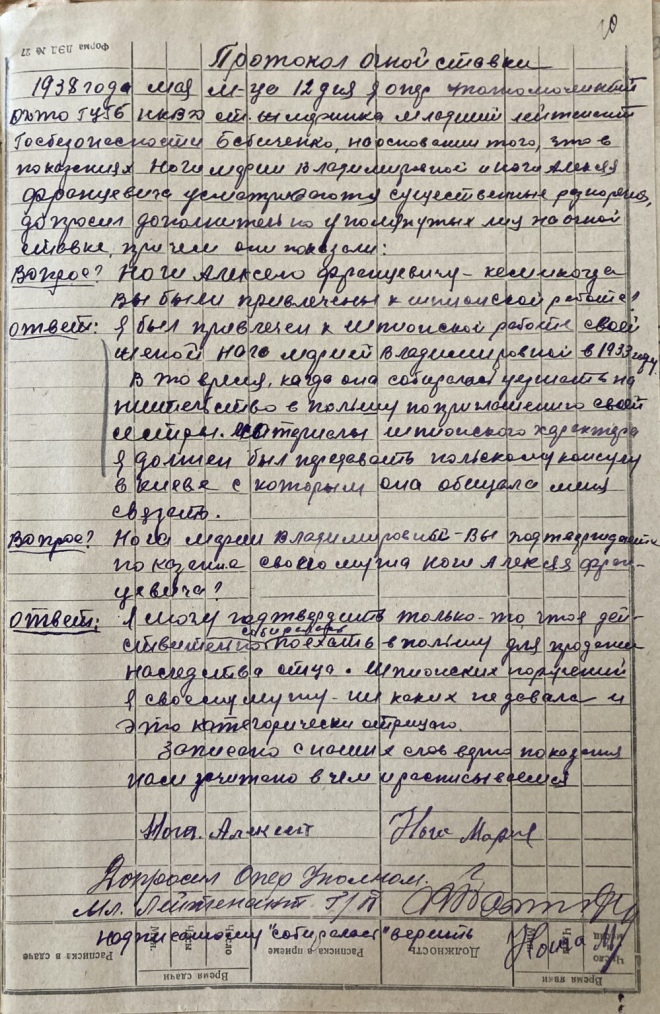 20
Форма ЛЭД № 27
Протокол очной ставки
1938 года мая м-ца 12 дня я опер уполномоченный
ГУГБ НКВД ст. Шмеринка младший лейтенант
Госбезопасности Бабиченко, на основании того, что в
показаниях Ноги Марии Владимировной и Ноги Алексея
Францевича усматриваются существенные разноречия,
допросил дополнительно упомянутых лиц на очной
ставке, причем они показали:
Вопрос? Ноги Алексею Францевичу – кем и когда
Вы были привлечены к шпионской работе?
Ответ: Я был привлечен к шпионской работе своей
женой Ногой Марией Владимировной в 1933 году.
В то время, когда она собиралась уезжать на
жительство в Польшу по приглашению своей
сестры. Материалы шпионского характера
я должен был передавать польскому консулу
в Киеве с которым она обещала меня
связать.
Вопрос? Нога Мария Владимировна – Вы подтверждаете
показания своего мужа Ноги Алексея Фран-
цевича?
Ответ: Я могу подтвердить только-то, что я дей-
собиралась
ствительно поехать в Польшу для продажи
наследства отца. Шпионских поручений
я своему мужу – ни каких не давала и
это категорически отрицаю.
Записано с наших слов верно показания
нами зачитано в чем и расписываемся
Нога Алексей Нога Мария
Допросил Опер Уполном.
Мл. Лейтенант Г/Б
надписанному "собиралась" верить
Нога М
Расписка в сдаче
Время сдачи
Число
Часы
Мин.
Расписка в приеме
Должность
Время явки
Число
Часы